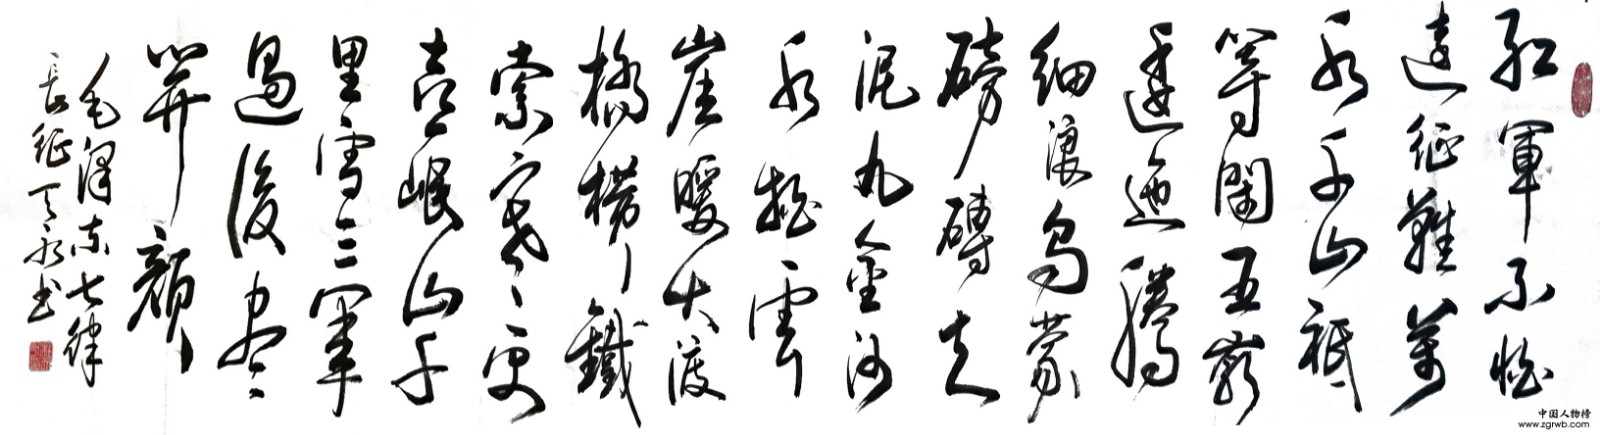 紅軍不怕
遠征難萬
水千山祇
等閑五嶺
逶迤騰
細浪烏蒙
磅礴走
泥丸金沙
水拍雲
崖暖大渡
橋橫鐵
索寒更
喜岷山千
里雪三軍
過後盡
開顏
毛澤东七律
長征永书
中国人物榜
www.zgrwb.com